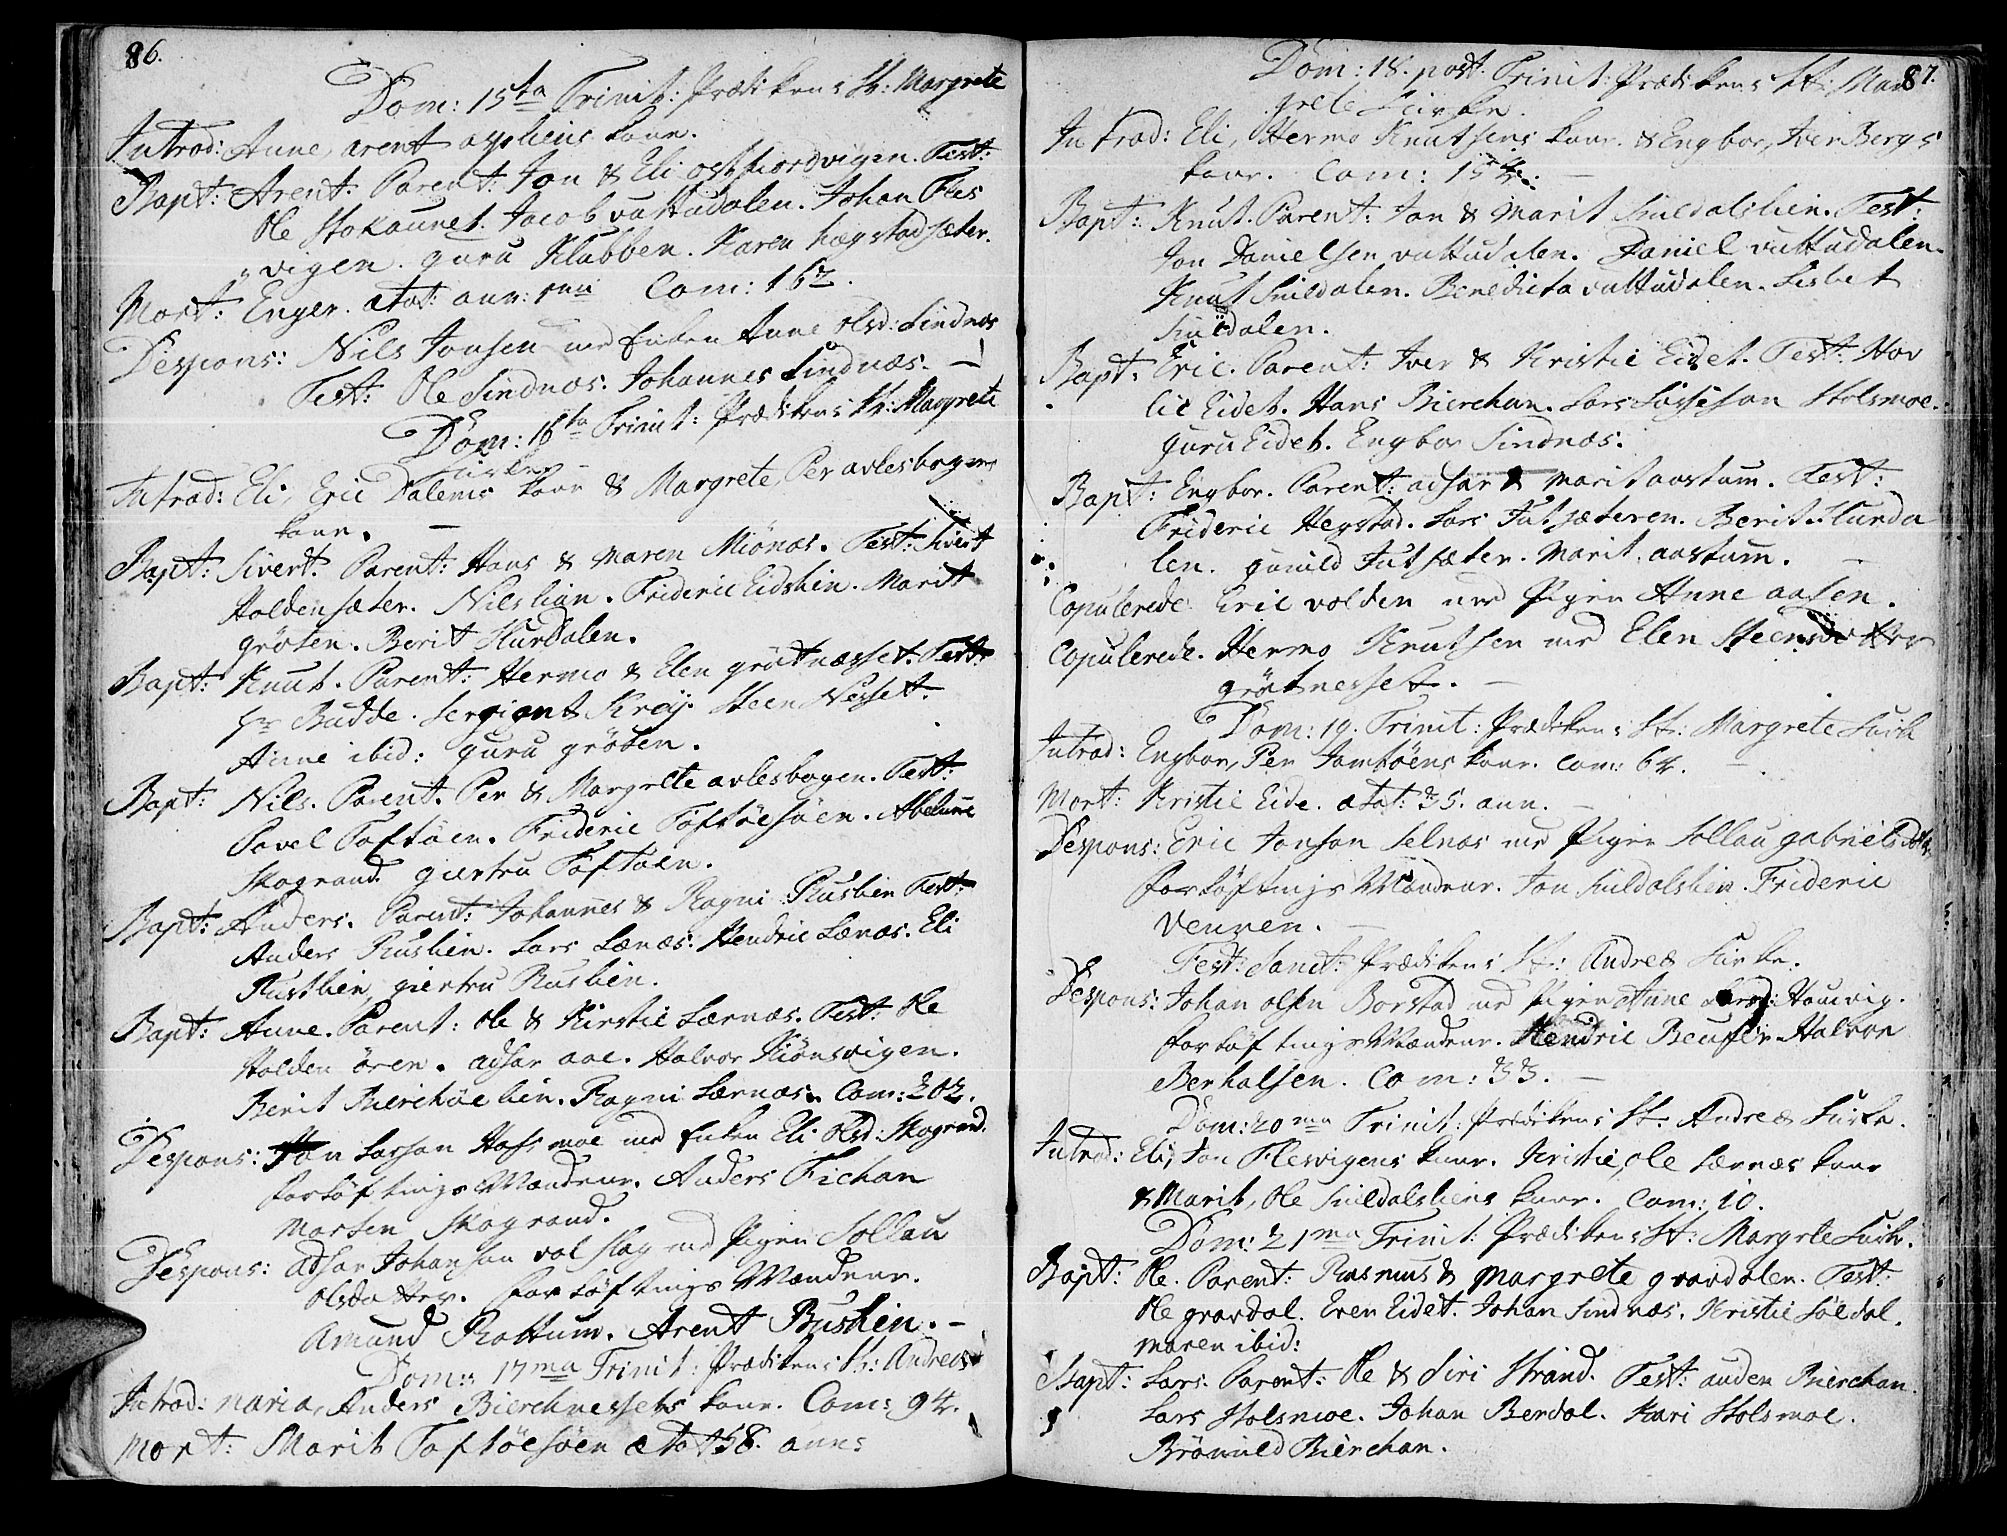 86.
Dom: 15ta Trinit: Prædiken i St: Margrete
Introd: Anne, arent aspliens kone.
Bapt: Arent. Parent: Jon & Eli ostfiordvigen. Test:
Ole Stokaunet. Jacob vuttudalen. Johan Fles
vigen. guru Klubben. Karen hægstadsæter.
Mort: Enger. ætat: ann: Com: 162.
Despons: Nils Jonsen med Enken Anne Olsd: Sindnæs
Test: Ole Sindnæs. Johannes Sindnæs. —
Dom: 16ta Trinit: Prædiken i St: Margrete
Kirke
Introd: Eli, Eric Dalems kone & Margrete, Per avlesbogens
kone. —
Bapt: Sivert. Parent: Hans & Maren Miönæs. Test: Sivert
Holdensæter. Nils lian. Frideric Eidslien. Marit
gröten. Berit Slurdalen.
Bapt: Knut. Parent: Hermo & Elen grötnæsset. Test:
Hr Budde. Sergiant Krøy. Steen Nesset.
Anne ibid: guru gröten.
Bapt: Nils. Parent. Per & Margrete avlesbogen. Test:
Pavel Toftöen. Frideric Toftöesöen. Abelune
Skogrand. giertru Toftöen.
Bapt: Anders. Parent: Johannes & Ragni Ruslien Test:
Anders Ruslien. Lars Lernæs. Hendric Lernæs. Eli
Rustlien, giertru Ruslien.
Bapt: Anne. Parent: Ole & Kirstie Lærnæs. Test: Ole
Holden ören. adsar aae. Halvor Kiönsvigen.
Berit Bierchöelien. Ragni Lærnæs. Com: 202.
Despons: Jon Larsøn Hofsmoe med Enken Eli Olsd: Skogrand.
forløftnings Mændene. Anders Fichan
Morten Skogrand.
Despons: adsar Johansøn volslag med Pigen Sollau
Olsdatter. forløftnings Mændene.
Amund Rottum. Arent Buslien. —
Dom: 17ma Trinit: Prædiken i St: Andreas
Introd: maria, Anders Bierchnessets kone. Com: 94.
Mort: Marit Toftöesöen ætat 58. ann:
87.
Dom: 18. post Trinit: Prædiken i St: Mar
grete Kirke.
Introd: Eli, Hermo Knutsens kone. & Engbor, Iver Bergs
kone. Com: 154. —
Bapt: Knut. Parent: Jon & Marit Snildalslien. Test:
Jon Danielsen vuttudalen. Daniel vuttudalen.
Knut Snildalen. Benedicta vuttudalen. Lisbet
Snildalen.
Bapt: Eric. Parent: Iver & Kristie Eidet. Test: Hav
lic Eidet. Hans Bierchan. Lars Larsøn Stolsmoe.
guru Eidet. Engbor Sindnæs.
Bapt: Engbor. Parent: adsar & marit aastum. Test:
Frideric Hegstad. Lars Jutsæteren. Berit Slurda
len. gunild Jutsæter. Marit aastum. —
Copulerede. Eric volden med Pigen Anne aasen.
Copulerede. Hermo Knutsen med Elen Steensdotter
grötnesset. —
Dom: 19. Trinit: Prædiken i St: Margrete Kirke
Introd: Engbor, Per Jamtöens kone. Com: 64. —
Mort: Kristie Eide. ætat: 35. ann. —
Despons: Eric Jonsøn Selnæs med Pigen Sollau gabrielsdatter
forløftnings Mændene. Jon Snildalslien. Frideric
Vennen. —
Fest: Sanct: Prædiken i St: Andreæ Kirke.
Despons: Johan Olsen Borstad med Pigen Anne Larsd: Houvig.
forløftnings Mændene. Hendric Halvor
Berhalsen. Com: 33. —
Dom: 20ma Trinit: Prædiken i St: Andreæ Kirke.
Introd: Eli, Jon Flesvigens kone. Kristie, Ole Lærnæs kone
& Marit, Ole Snildalsliens kone. Com: 10.
Dom: 21ma Trinit: Prædiken i St: Margrete Kirke.
Bapt: Ole. Parent: Rasmus & Margrete gravdalen. Test:
Ole gravdal. Even Eidet. Johan Sindnæs. Kristie Söldal.
maren ibid:
Bapt: Lars. Parent: Ole & Siri Strand. Test: auden Bierchan.
Lars Stolsmoe. Johan Berdal. Kari Stolsmoe.
Brönild Bierchan.